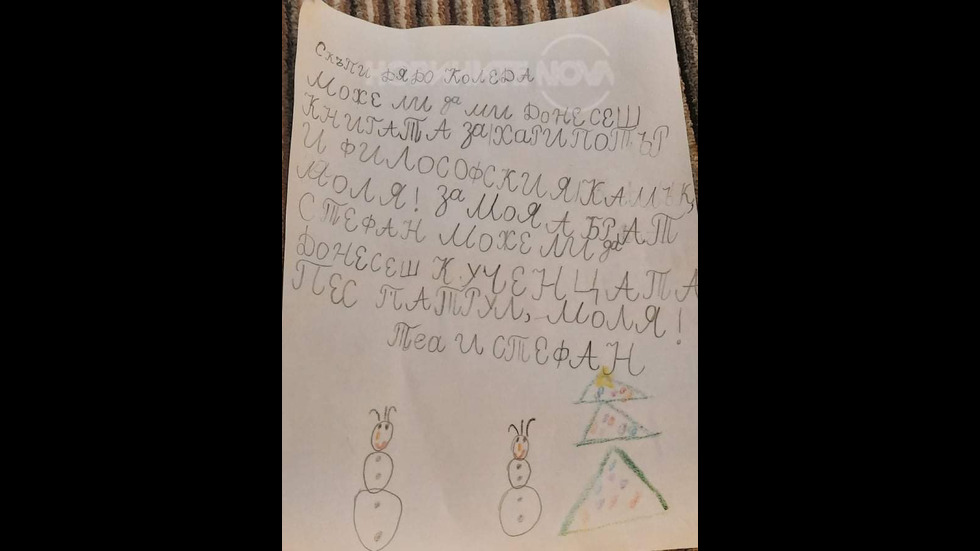 Скъпи дядо Коледа
Може ли да ми донесеш
книгата за Хари Потър
и философския камък,
моля! За моя брат
Стефан може ли да
донесеш кученцата
Пес патрул, моля!
Теа и Стефан